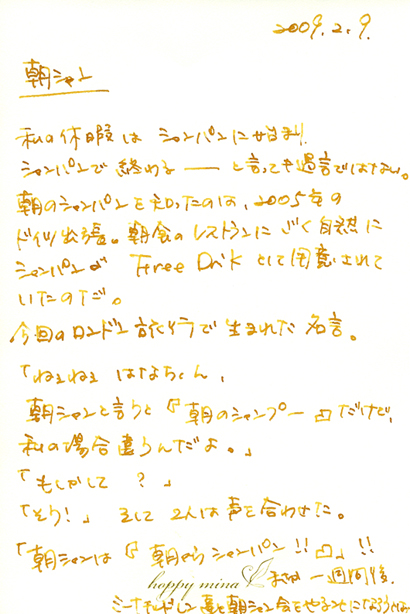 2009. 2. 9.
朝シャン
私の休暇は シャンパンに始まり、
シャンパンで 終わる ── と言っても過言ではない。
朝のシャンパンを知ったのは、2005年の
ドイツ出張。朝食のレストランに ごく自然に
シャンパンが Free Drikとして用意されて
いたのだ。
今回のロンドン旅行で 生まれた 名言。
「ねぇねぇ はなちゃん、
朝シャンと言うと『朝のシャンプー』だけど、
私の場合違うんだよ。」
「もしかして ?」
「そう!」 そして 2人は声を合わせた。
「朝シャンは『朝からシャンパン!!』」!!
happy mina
まさか 一週間後、
朝シャン会をやる